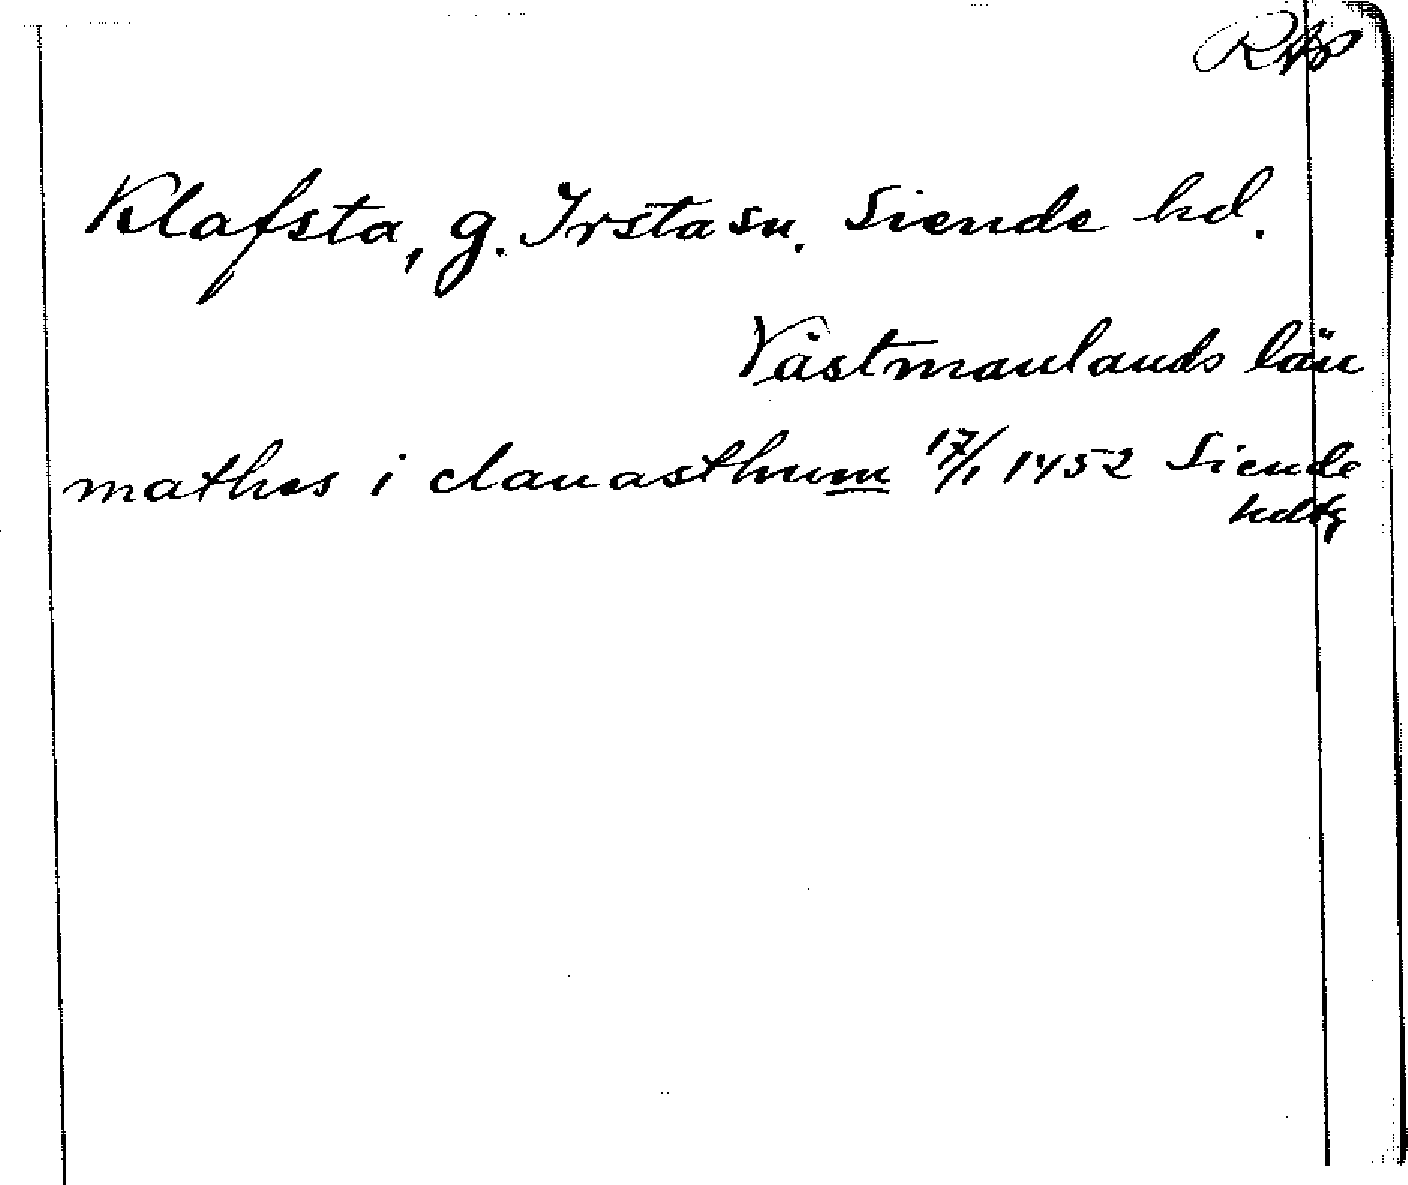 RAp
Klafsta, g. Irsta sn. Siende hd.
Västmanlands län
mathes i clauasthum 17/1 1452 Siende
hdtg